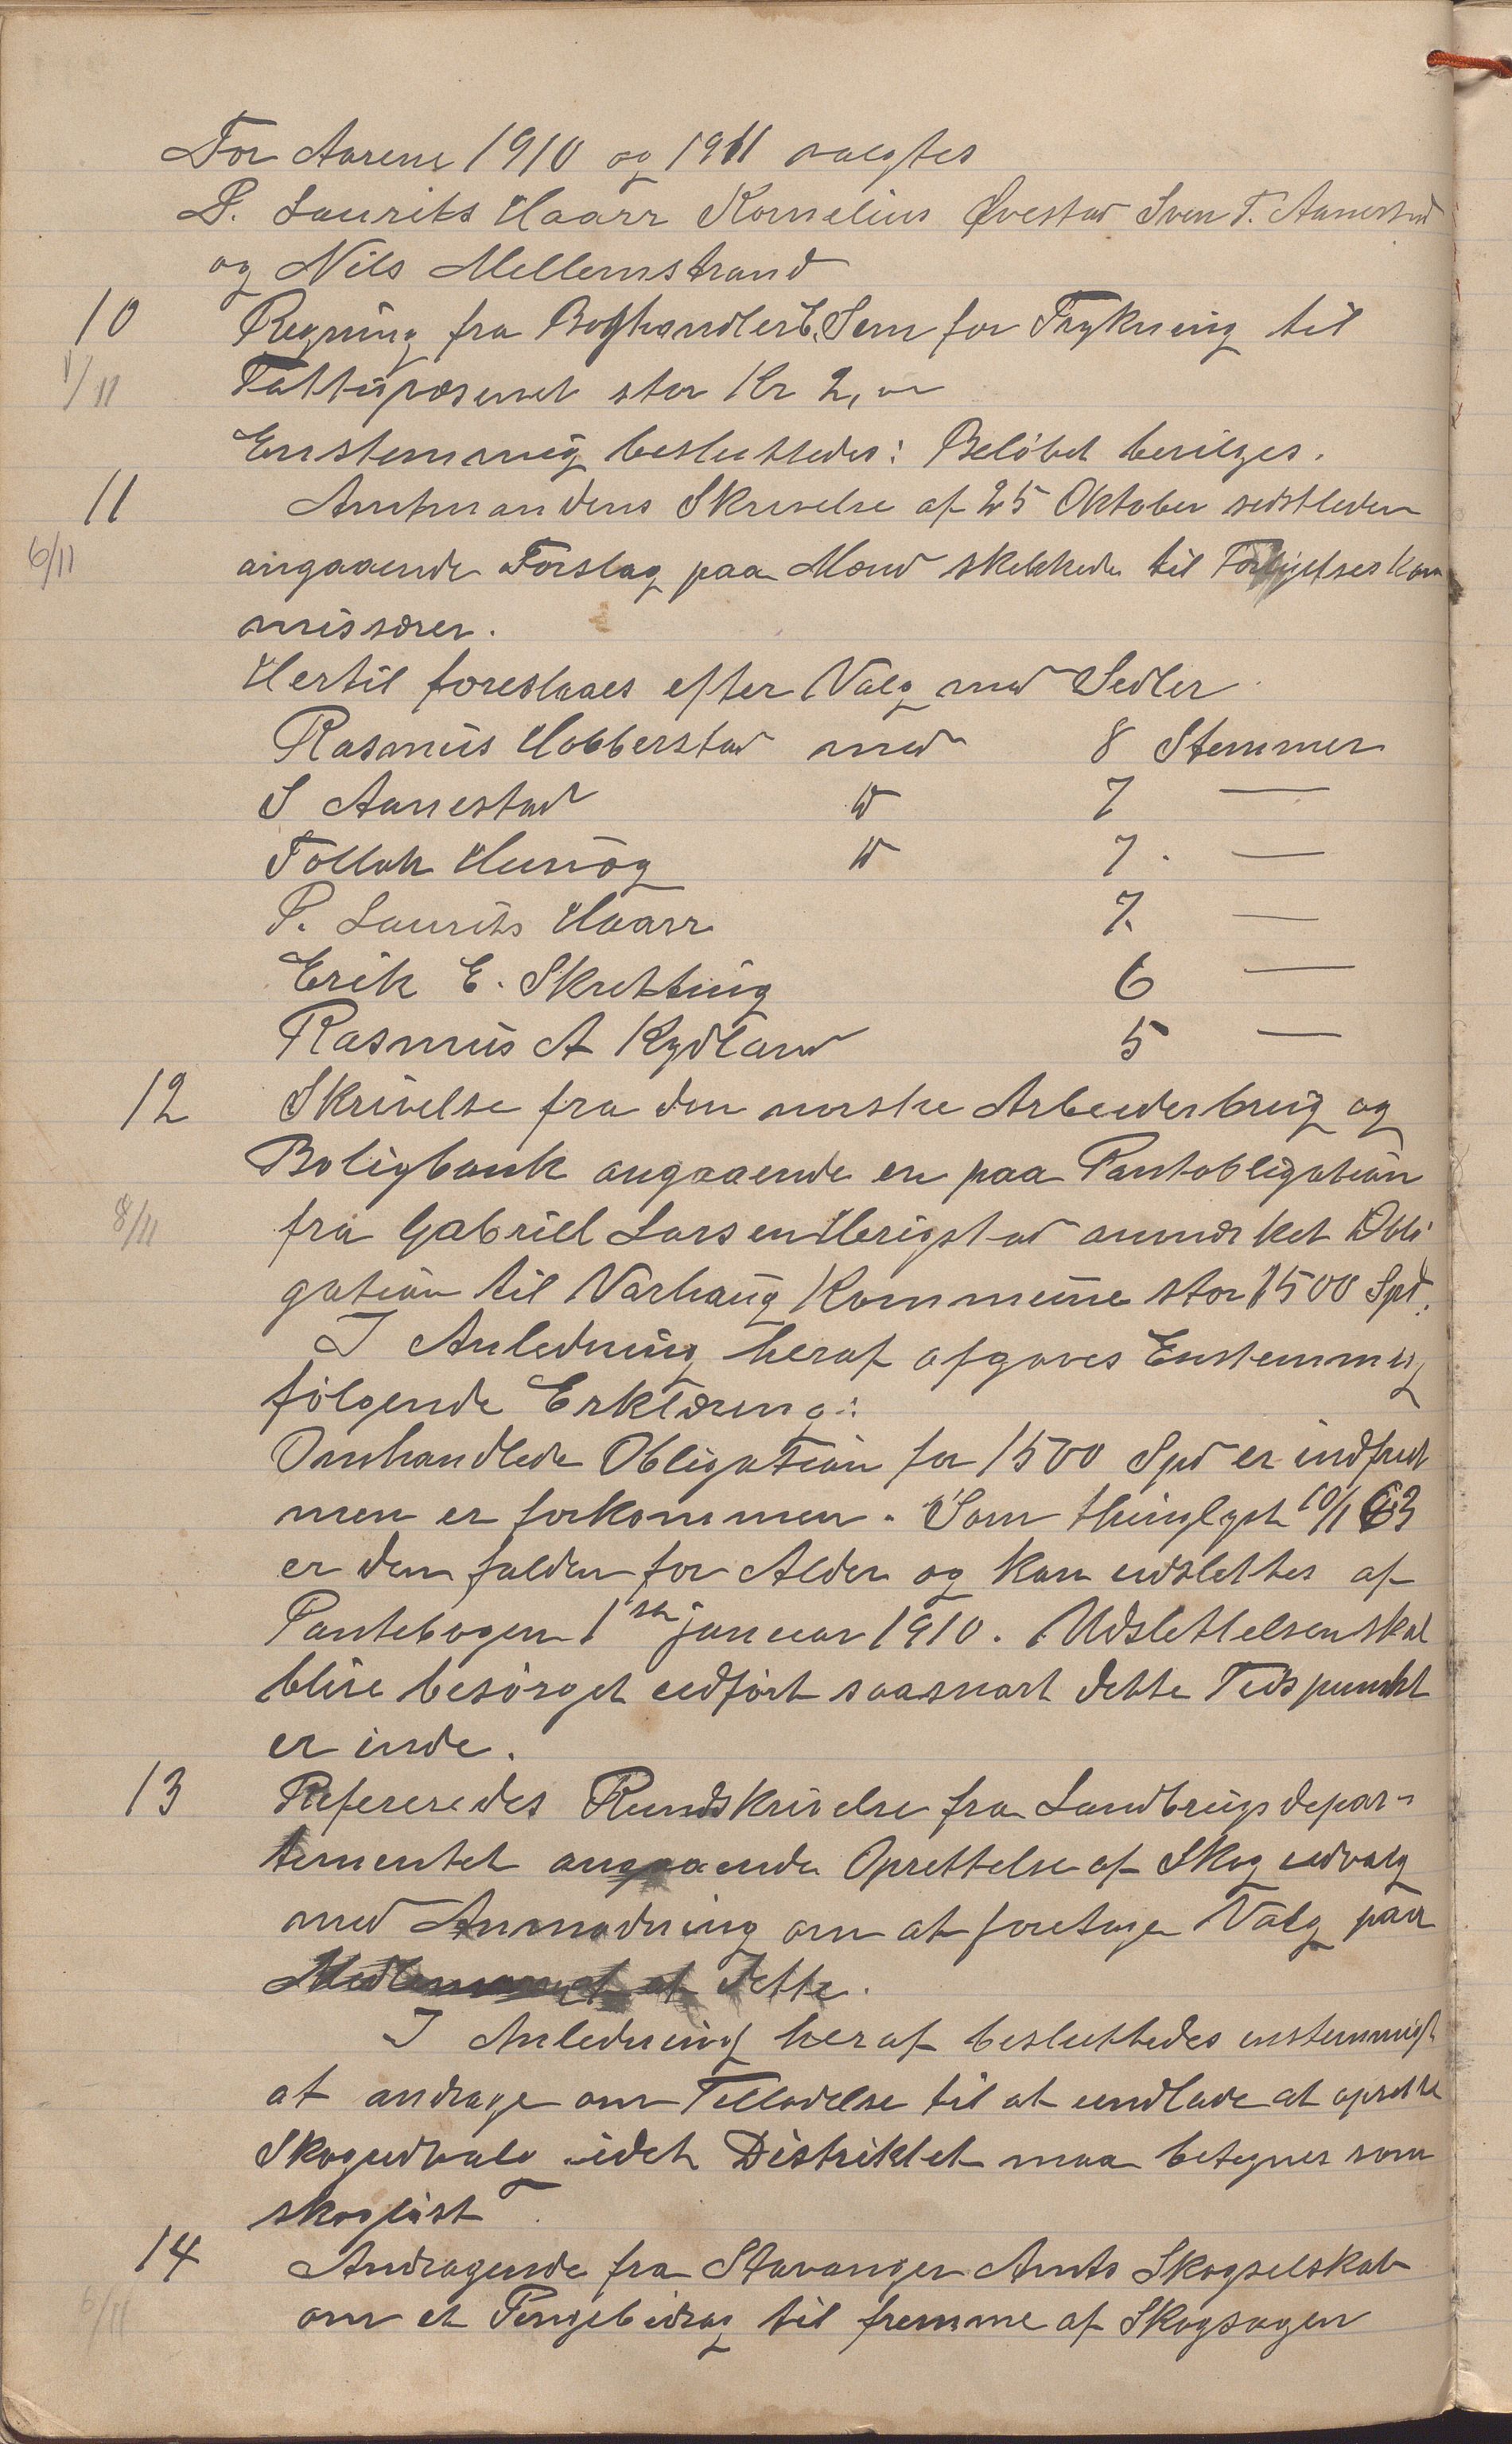 For Aarene 1910 og 1911 valgtes
P. Laurits Haarr Kornelius Øvestad Sven T. Aanestad
og Nils Mellemstrand
10 Regning fra Boghandler E. Sem for Trykning til
1/11 Fattigvæsenet stor Kr 2,00
Enstemmig besluttedes: Beløbet bevilges.
11 Amtmandens Skrivelse af 25 Oktober sidstleden
6/11 angaaende Forslag paa Mænd skikkede til Forligelseskom
missærer.
Hertil foreslaaes efter Valg med Sedler
Rasmus Hobberstad med 8 Stemmer
S Aanestad " 7 —
Tollak " 7. —
P. Laurits Haarr 7. —
Erik E. Skretting 6 —
Rasmus A Kydland 5 —
12 Skrivelse fra den norske Arbeiderbrug og
Boligbank angaaende en paa Pantobligation
8/11 fra Gabriel Larsen Herigstad anmærket Obli
gation til Varhaug Kommune stor 1500 Spd.
I Anledning heraf afgaves Enstemmig
følgende Erklæring:
Omhandlede Obligation for 1500 Spd er indfriet
men er forkommen. Som thinglyst 10/1 63
er den falden for Alder og kan udslettes af
Pantebogen 1ste januar 1910. Udslettelsen skal
blive besørget udført saasnart dette Tidspunkt
er inde.
13 Refereredes Rundskrivelse fra Landbrugsdepar-
tementet angaaende Oprettelse af Skogudvalg
med Anmodning om at foretage Valg paa
Medlemmer af dette.
I Anledning heraf besluttedes enstemmigt
at andrage om Tilladelse til at undlade at oprette
Skogudvalg idet Distriktet maa betegnes som
skogløst
14 Andragende fra Stavanger Amts Skogselskab
6/11 om et Pengebidrag til fremme af Skogsagen